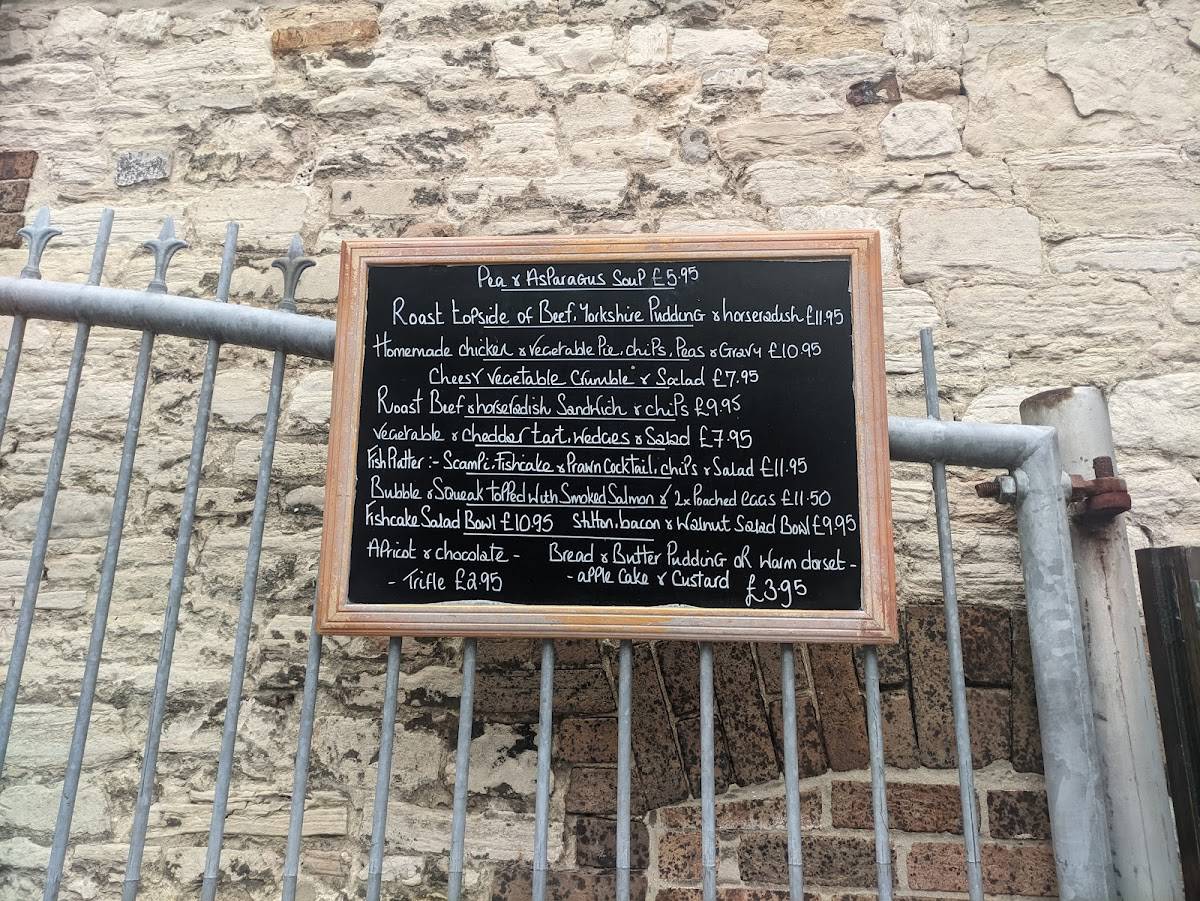 Pea & Asparagus Soup £5.95
Roast topside of Beef, Yorkshire Pudding & horseradish £11.95
Homemade chicken & vegetable Pie, chips, Peas & Gravy £10.95
Cheesy vegetable Crumble & Salad £7.95
Roast Beef & horseradish Sandwich & chips £9.95
Vegetable & Chedder tart, Wedges & Salad £7.95
Fish Platter :- Scampi, Fishcake & Prawn Cocktail, chips & Salad £11.95
Bubble & Squeak topped with Smoked Salmon & 2x Poached eggs £11.50
Fishcake Salad Bowl £10.95 Stilton, bacon & Walnut Salad Bowl £9.95
Apricot & chocolate - Bread & Butter Pudding OR Warm dorset -
- Trifle £2.95 - apple Cake & Custard £3.95